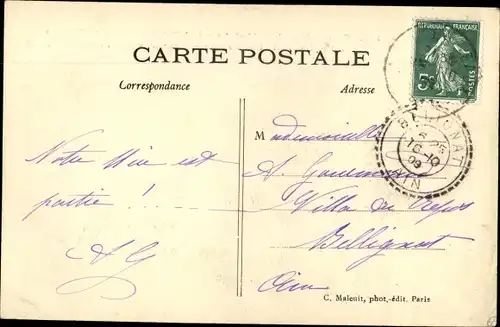 RÉPUBLIQUE FRANÇAISE
5c
POSTES
CARTE POSTALE
Correspondance
Adresse
BELLIGNAT
16-10
09
AIN
Notre Mie est
partie !
AG
Mademoiselle
A.
Villa du Repos
Bellignat
Ain
C. Malcuit, phot.-édit. Paris